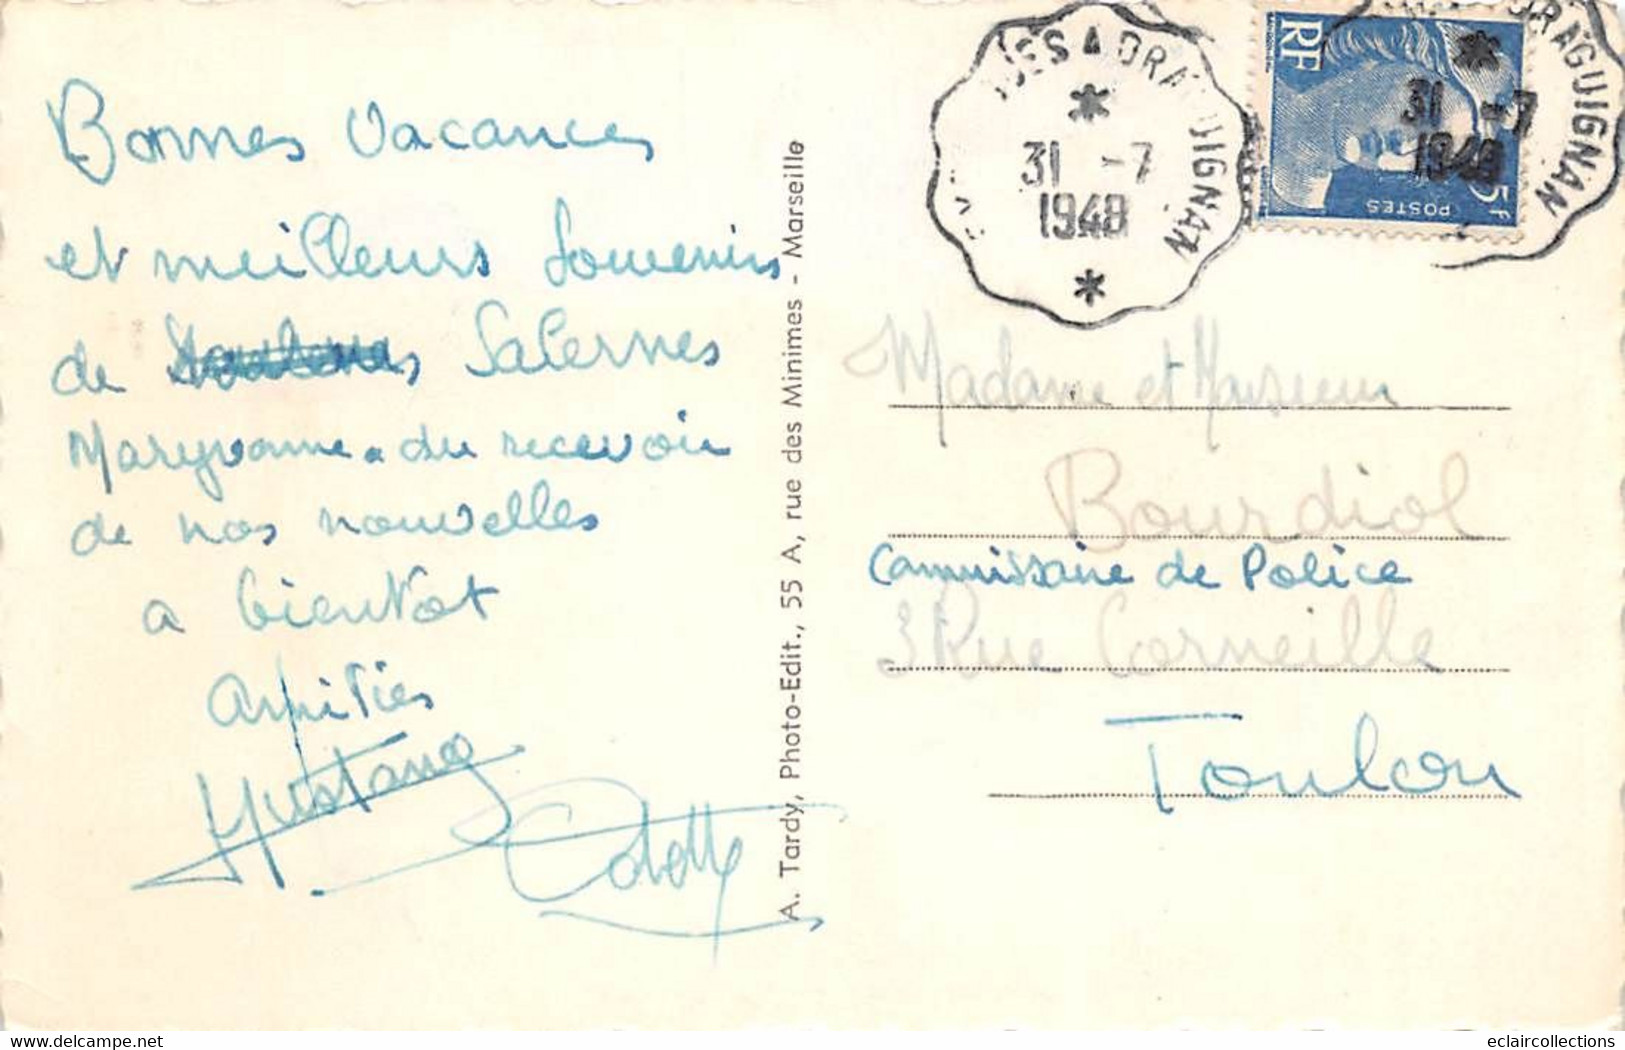 Bonnes Vacances
et meilleurs Souvenirs
de Salernes
Maryvonne a du recevoir
de nos nouvelles
a bientot
Amitiés
Mustang
Odette
A. Tardy, Photo-Edit., 55 A, rue des Minimes - Marseille
A DRAGUIGNAN
31 -7
1948
RF
POSTES
5F
DRAGUIGNAN
31 -7
1948
Madame et Monsieur
Bourdiol
Commissaire de Police
3 Rue Corneille
Toulon
eclaircollections